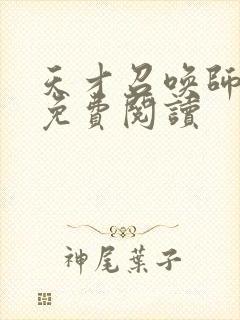 天才召喚師
免費閱讀
神尾葉子